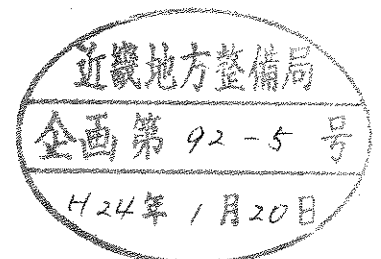 近畿地方整備局
企画第 92-5 号
H24年 1月20日